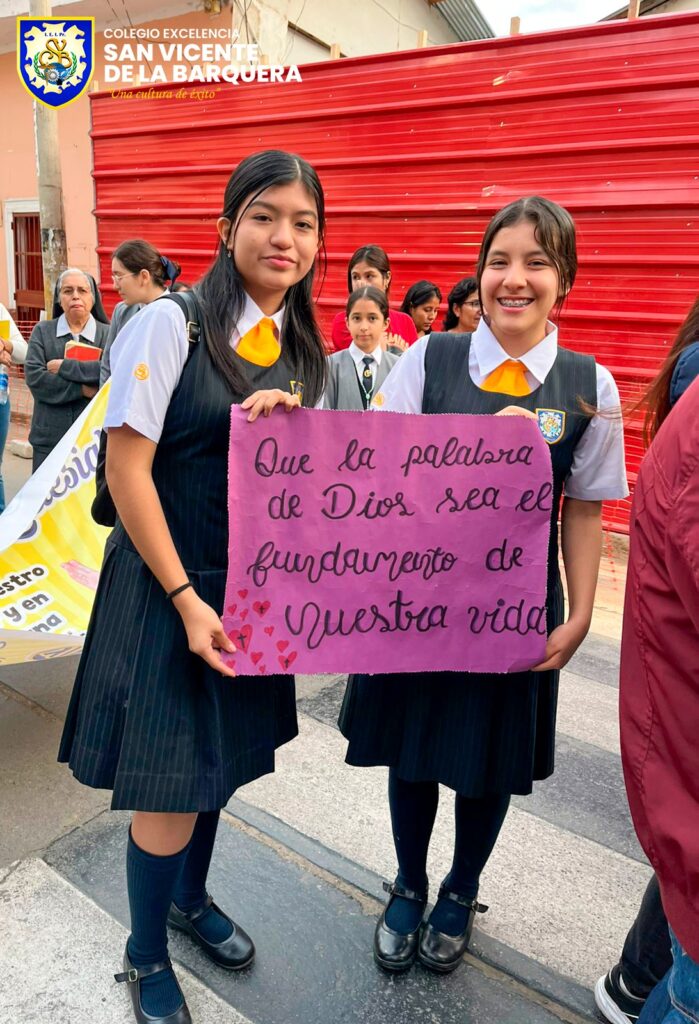 COLEGIO EXCELENCIA
SAN VICENTE
DE LA BARQUERA
"Una cultura de éxito"
Que la palabra
de Dios sea el
fundamento de
nuestra vida
y en